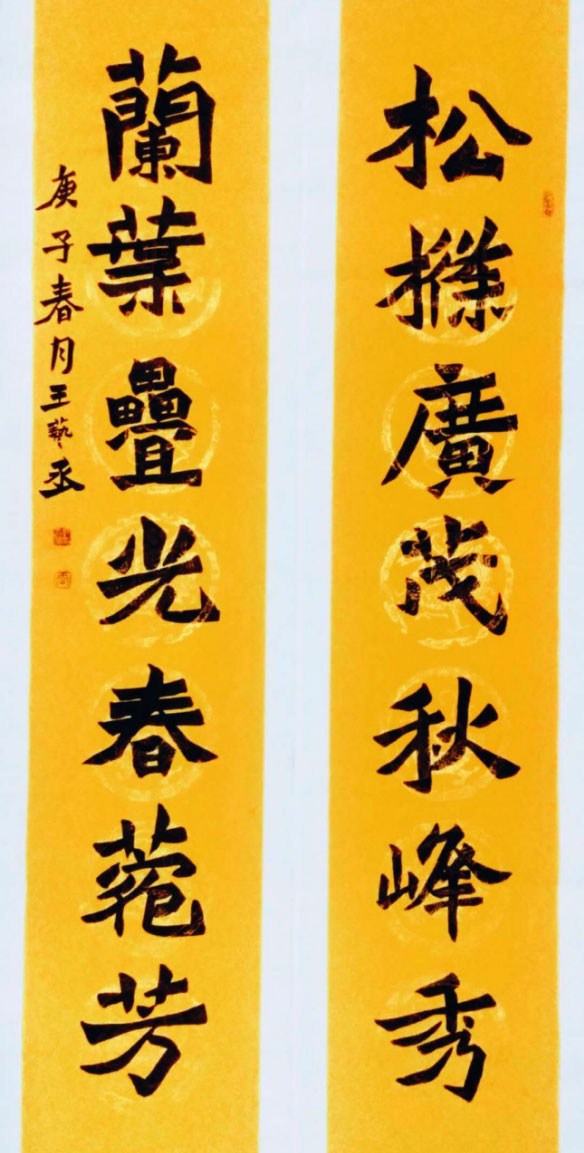 松操廣茂秋峰秀
蘭葉疊光春苑芳
庚子春月王藝丞